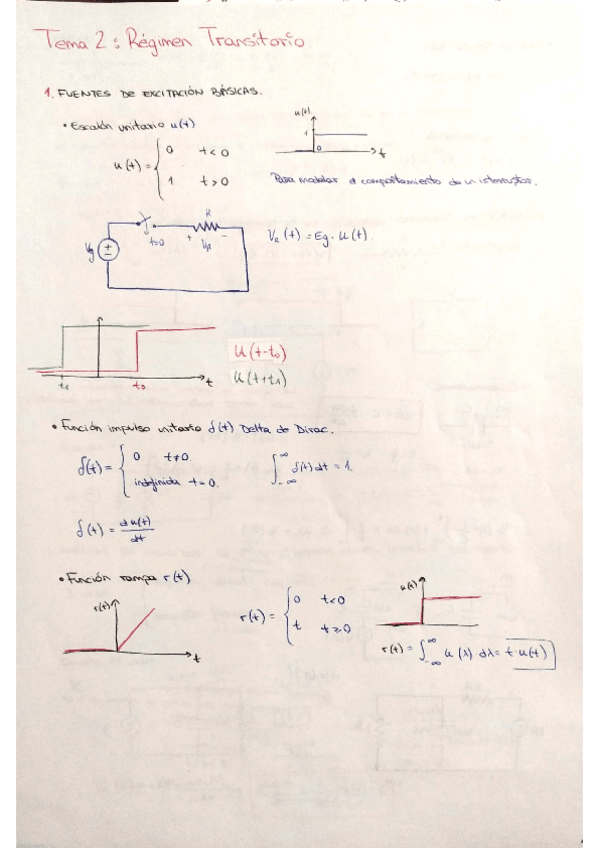 Tema 2: Régimen Transitorio
1. FUENTES DE EXCITACIÓN BÁSICAS.
• Escalón unitario u(t)
u(t) = { 0 t < 0
1 t > 0
u(t)
1
0
t
Para modelar el comportamiento de un interruptor.
Vg
+
−
t=0
R
+ VR −
VR (t) = Eg · u(t)
t1
t0
t
u(t-t0)
u(t+t1)
• Función impulso unitario δ(t) Delta de Dirac.
δ(t) = { 0 t≠0.
indefinida t=0.
∫_{-∞}^{∞} δ(t) dt = 1.
δ(t) = du(t)/dt
• Función rampa r(t)
r(t)
t
r(t) = { 0 t<0
t t≥0
u(t)
r(t) = ∫_{-∞}^{∞} u(λ) dλ = t·u(t)